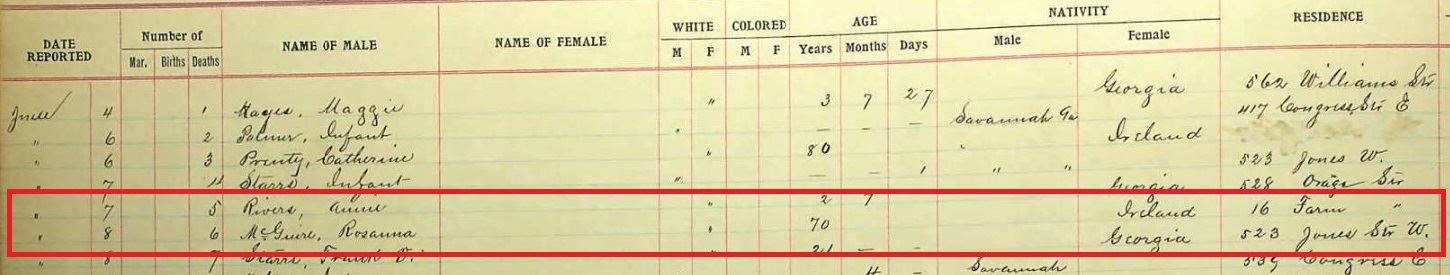 DATE REPORTED Number of NAME OF MALE NAME OF FEMALE WHITE COLORED AGE NATIVITY RESIDENCE
Mar. Births Deaths M F M F Years Months Days Male Female
June 4 1 Hayes, Maggie " 3 7 27 Georgia 562 Williams Str
" 6 2 Palmer, Infant " — — — Savannah Ga 417 Congress Str E
" 6 3 Prenty, Catherine " 80 Ireland 523 Jones W.
" 7 4 Starrs, Infant " — — 1 " " 528 Orange Str
" 7 5 Rivers, Annie " 2 7 Georgia 16 Farm "
" 8 6 McGuire, Rosanna " 70 Ireland 523 Jones Str W.
" 8 7 Starrs, Frank D. 21 — — Georgia 539 Congress E
4 — Savannah